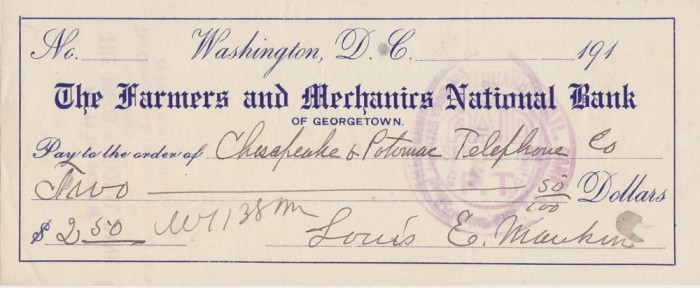 No. Washington, D. C. 191
The Farmers and Mechanics National Bank
OF GEORGETOWN.
Pay to the order of Chesapeake & Potomac Telephone Co
Two 50/100 Dollars
$ 2 50 Louis E.